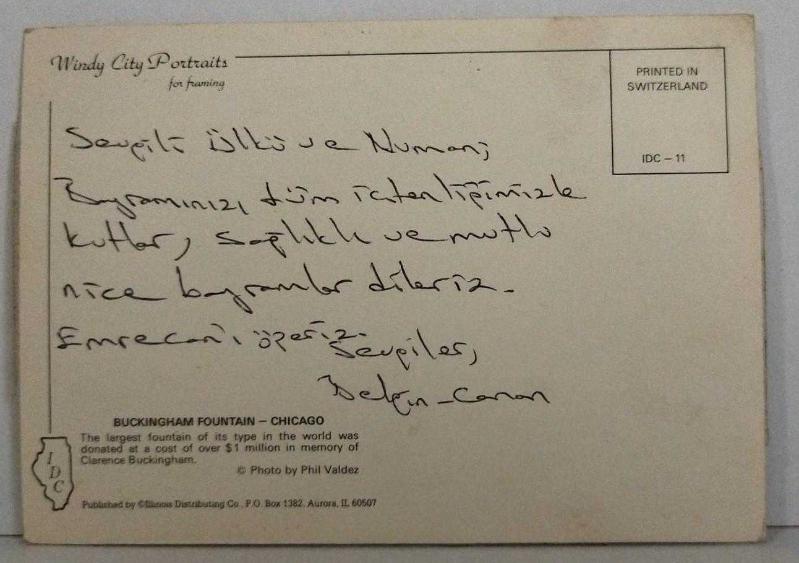 Windy City Portraits
for framing
PRINTED IN
SWITZERLAND
IDC – 11
Sevgili Ülkü ve Numan;
Bayramınızı, tüm içtenliğimizle
kutlar, sağlıklı ve mutlu
nice bayramlar dileriz.
Emrecan'ı öperiz.
Sevgiler,
Belgin – Canan
BUCKINGHAM FOUNTAIN – CHICAGO
The largest fountain of its type in the world was
donated at a cost of over $1 million in memory of
Clarence Buckingham.
© Photo by Phil Valdez
IDC
Published by ©Illinois Distributing Co., P.O. Box 1382, Aurora, IL 60507